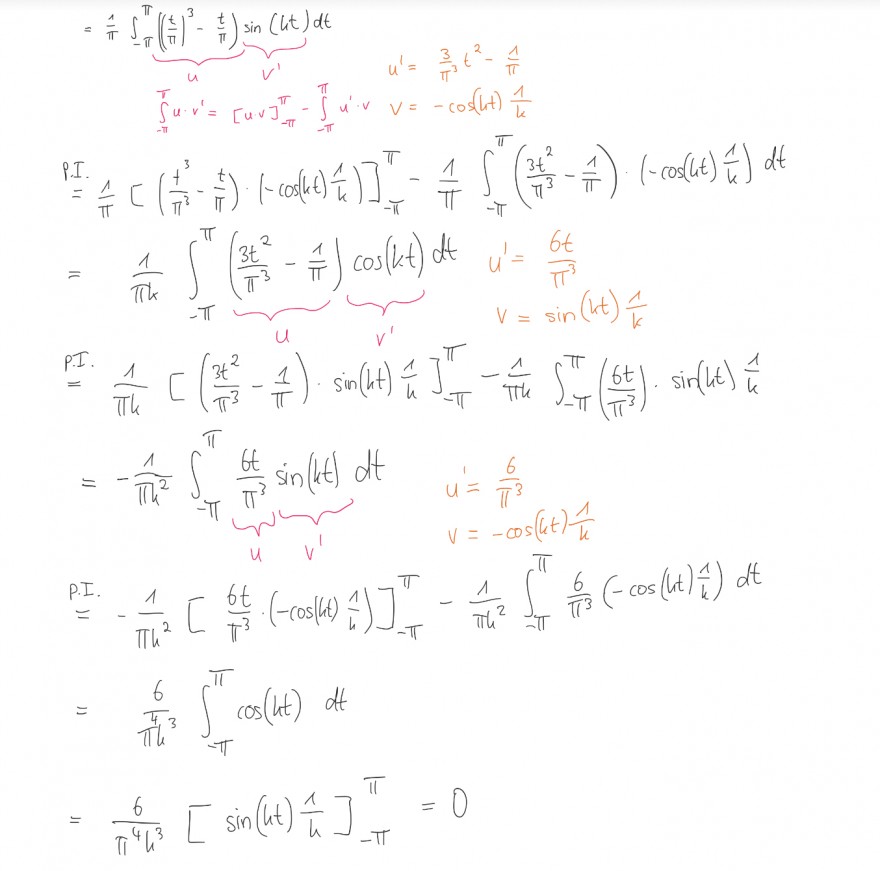 = 1/π ∫_{-π}^{π} ((t/π)^3 - t/π) sin(kt) dt
u v' u' = 3/π^3 t^2 - 1/π
∫_{-π}^{π} u·v' = [u·v]_{-π}^{π} - ∫_{-π}^{π} u'·v v = -cos(kt) 1/k
P.I. = 1/π [(t^3/π^3 - t/π)·(-cos(kt) 1/k)]_{-π}^{π} - 1/π ∫_{-π}^{π} (3t^2/π^3 - 1/π)·(-cos(kt) 1/k) dt
= 1/(πk) ∫_{-π}^{π} (3t^2/π^3 - 1/π) cos(kt) dt u' = 6t/π^3
u v' v = sin(kt) 1/k
P.I. = 1/(πk) [(3t^2/π^3 - 1/π)·sin(kt) 1/k]_{-π}^{π} - 1/(πk) ∫_{-π}^{π} (6t/π^3)·sin(kt) 1/k
= -1/(πk^2) ∫_{-π}^{π} 6t/π^3 sin(kt) dt u' = 6/π^3
u v' v = -cos(kt) 1/k
P.I. = -1/(πk^2) [6t/π^3·(-cos(kt) 1/k)]_{-π}^{π} - 1/(πk^2) ∫_{-π}^{π} 6/π^3 (-cos(kt) 1/k) dt
= 6/(π^4k^3) ∫_{-π}^{π} cos(kt) dt
= 6/(π^4k^3) [sin(kt) 1/k]_{-π}^{π} = 0